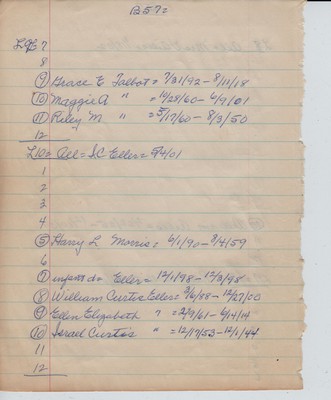 B57=
L9E 7
8
⑨ Grace E Talbot = 7/31/92 - 8/11/18
⑩ Maggie A " = 10/28/60 - 6/9/01
⑪ Riley M. " = 5/17/60 - 8/3/50
12
L10 = All = I.C Eller = 5/4/01
1
2
3
4
⑤ Harry L Morris = 6/1/90 - 3/4/59
6
⑦ infant da Eller = 12/1/98 - 12/3/98
⑧ William Curtis Eller = 3/6/88 - 12/27/00
⑨ Ellen Elizabeth " = 2/9/61 - 6/14/14
⑩ Israel Curtis " = 12/17/53 - 12/1/44
11
12